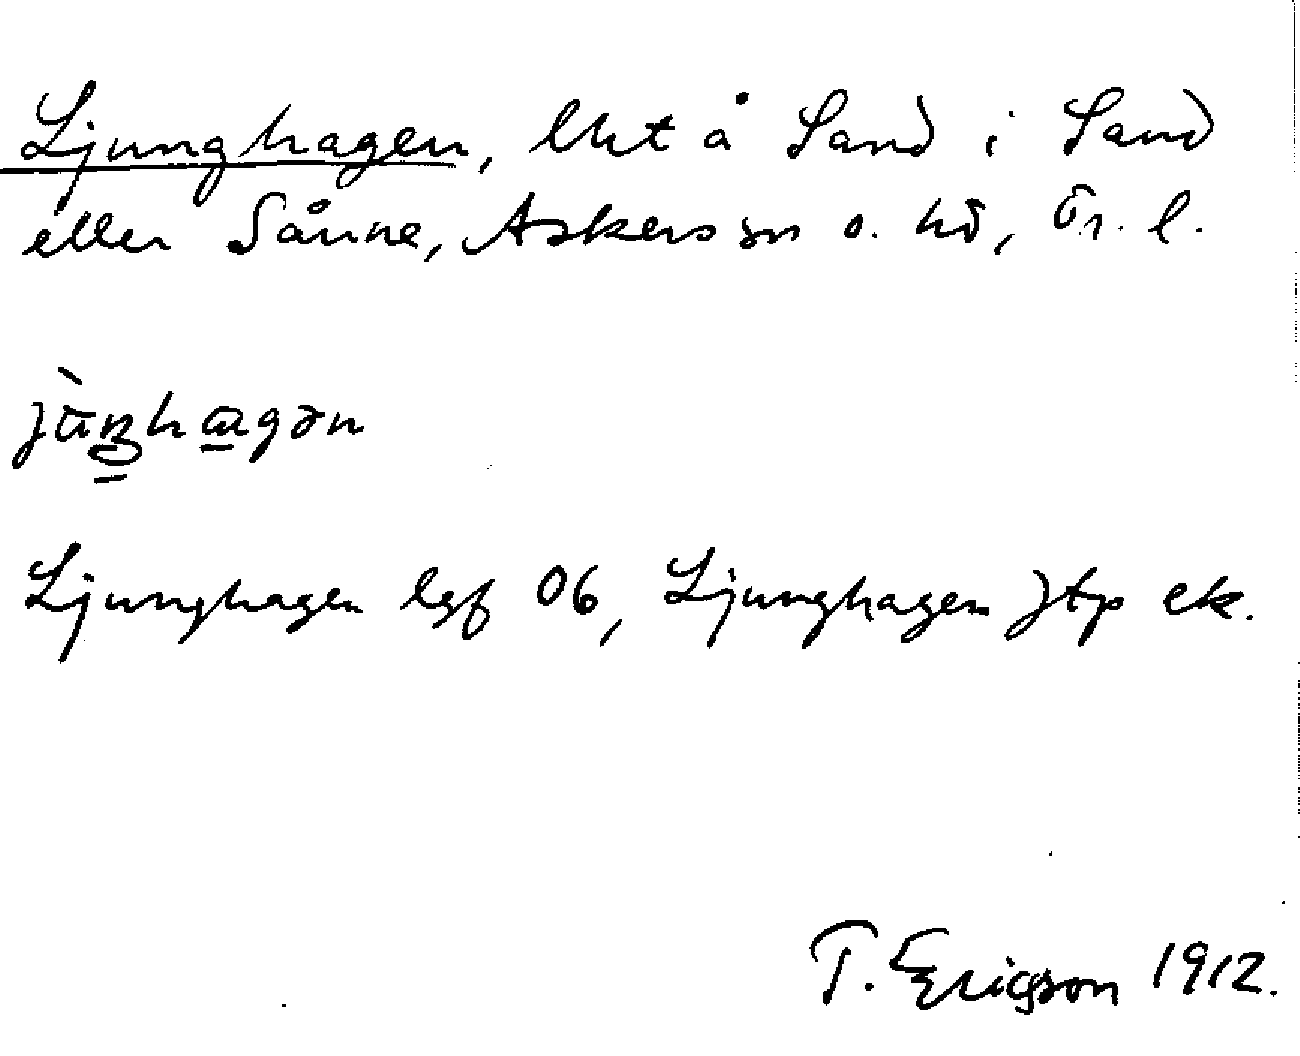 Ljunghagen, lht å Sand i Sand
eller Sånne, Askers sn o. hd, Ör. l.
Ljunghagen lgf 06, Ljunghagen jtp ek.
T. Ericson 1912.